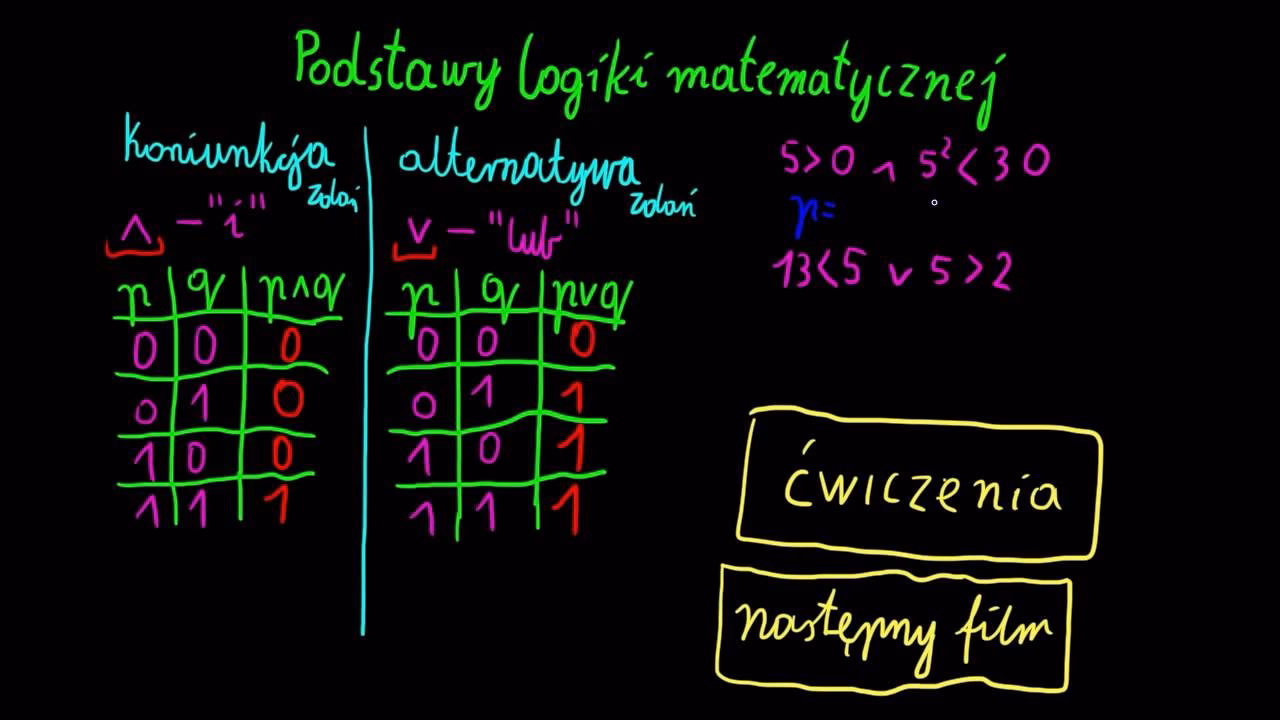 Podstawy logiki matematycznej
koniunkcja
zdań
∧ - "i"
p q p∧q
0 0 0
0 1 0
1 0 0
1 1 1
alternatywa
zdań
v - "lub"
p q pvq
0 0 0
0 1 1
1 0 1
1 1 1
5>0 ∧ 5²<30
p=
13<5 v 5>2
ćwiczenia
następny film